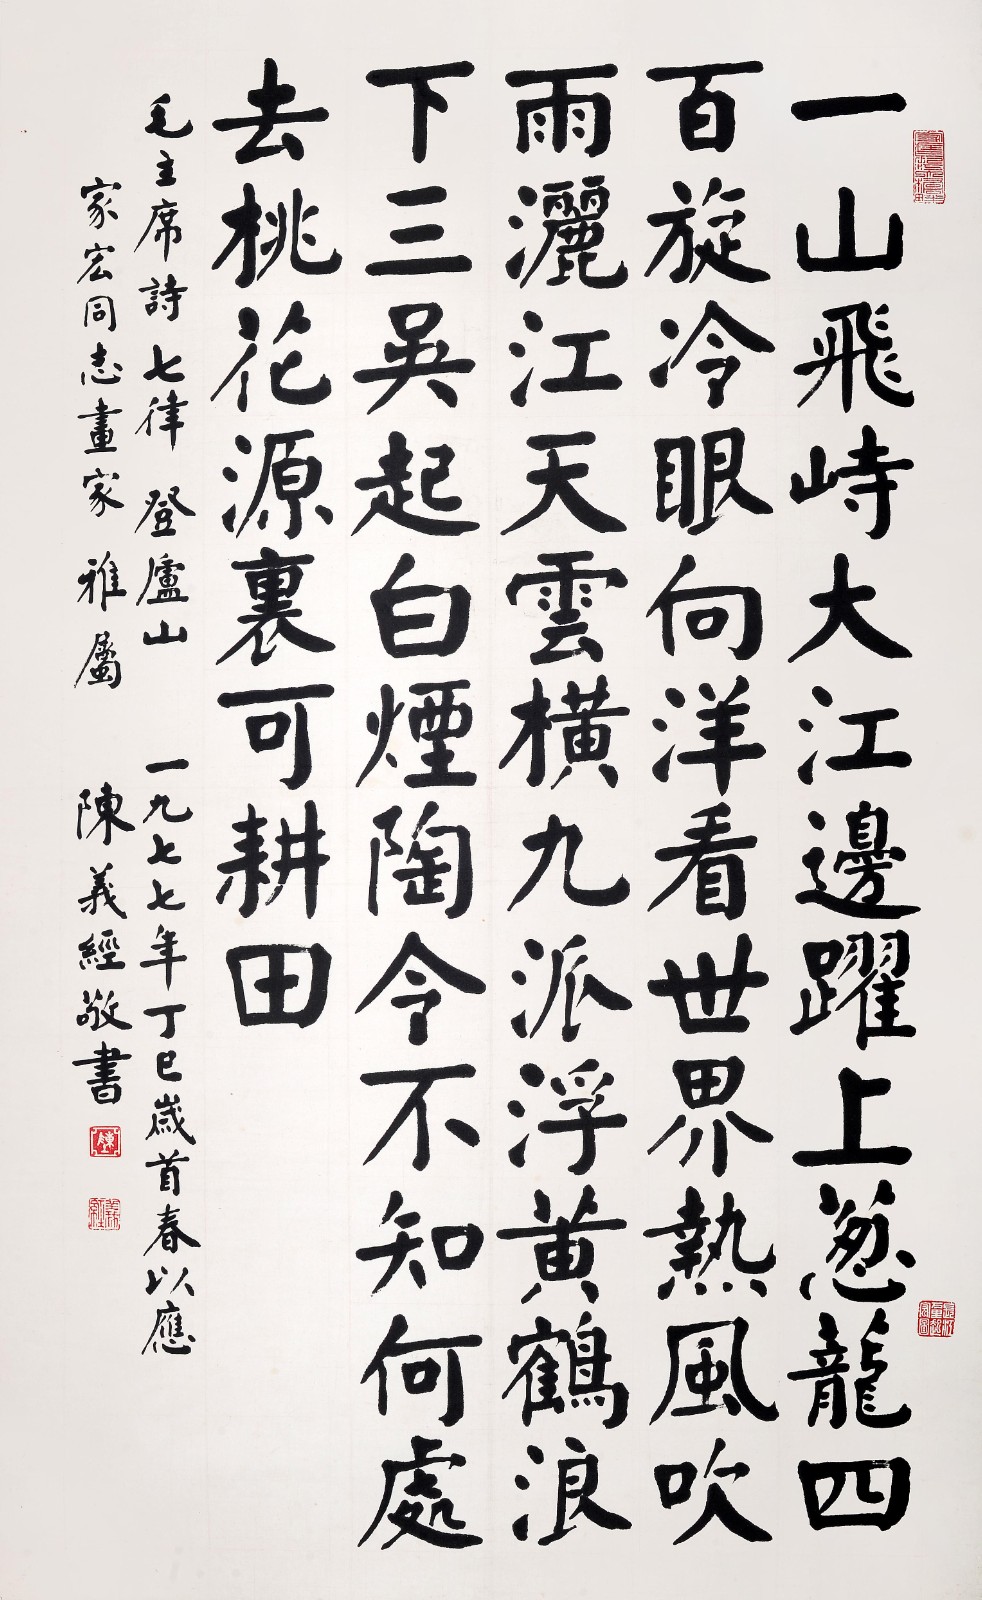 一山飛峙大江邊躍上葱蘢四
百旋冷眼向洋看世界熱風吹
雨灑江天雲橫九派浮黃鶴浪
下三吳起白煙陶令不知何處
去桃花源裏可耕田
毛主席詩七律 登廬山 一九七七年丁巳歲首春以應
家宏同志畫家 雅屬 陳義經敬書